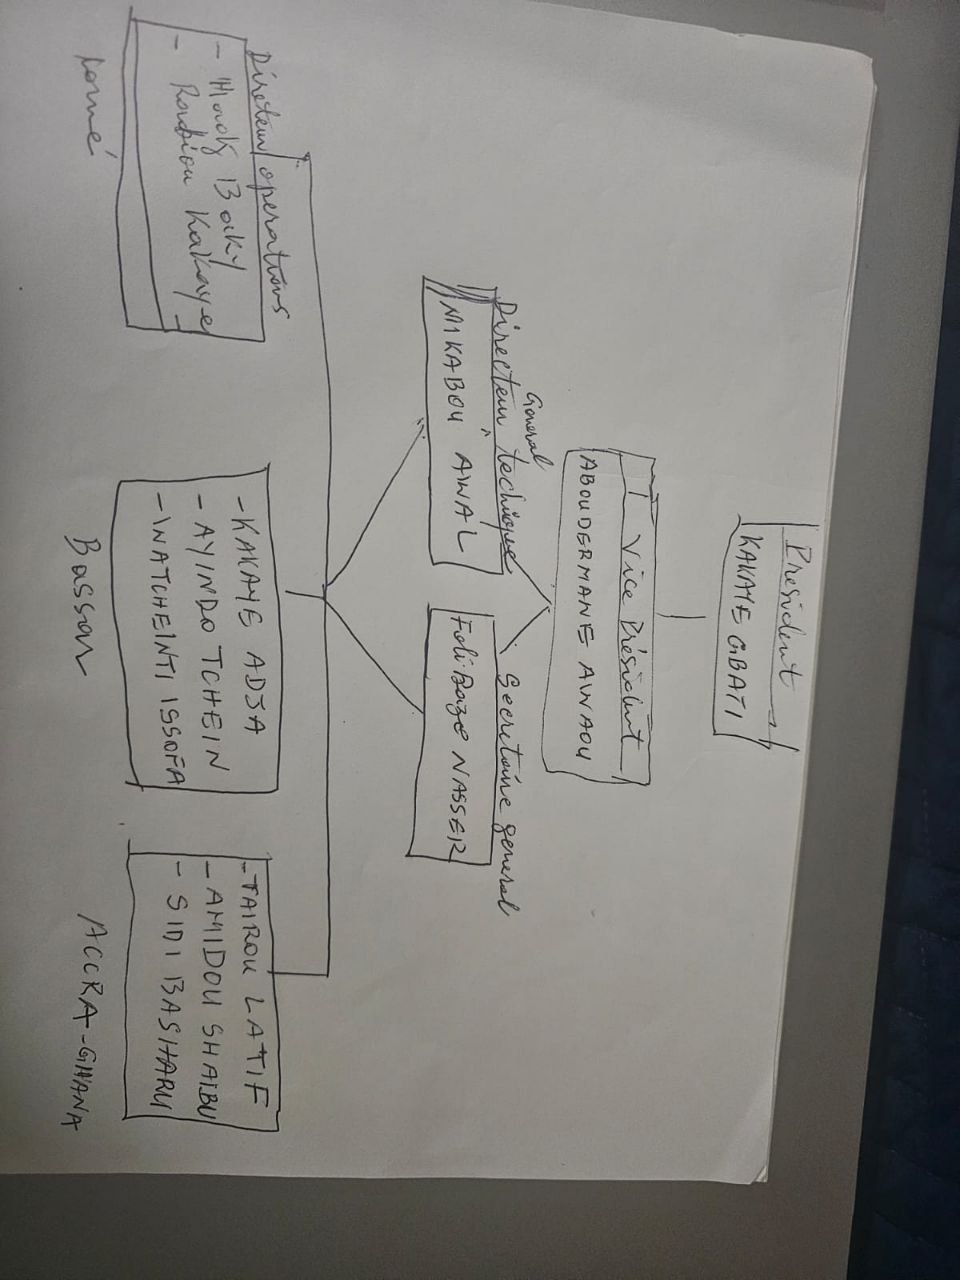 President
KAKAYE GBATI
Vice Président
ABOUDERMANE AWAOU
General
Directeur techique
Secretaire general
MIKABOU AWAL
Foli-Baze NASSER
Direteur operations
- Baky
- Roubiou Kakaye
- KAKAYE ADJA
- AYINDO TCHEIN
- WATCHEINTI ISSOFA
- TAIROU LATIF
- AMIDOU SHAIBU
- SIDI BASHARU
Lomé
Bassar
ACCRA-GHANA